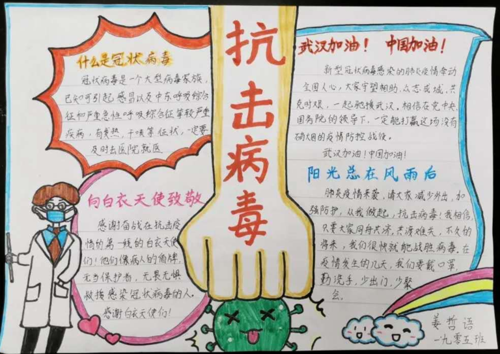 什么是冠状病毒
冠状病毒是一个大型病毒家族,
已知可引起感冒以及中东呼吸综合
征和严重急性呼吸综合征等较严重
疾病,有发热、干咳等症状,一定要
及时去医院就医
向白衣天使致敬
感谢!奋战在抗击疫
情的第一线的白衣天使
们!他们像病人的
无当保护者,无畏无惧
救援感染冠状病毒的人。
感谢白衣天使们!
抗击病毒
武汉加油! 中国加油!
新型冠状病毒感染的肺炎疫情牵动
全国人心,大家守望相助,众志成城,共
克时艰,一起驰援武汉,相信在党中央
国务院的领导下,一定能打赢这场没有
硝烟的疫情防控战役。
武汉加油!中国加油!
阳光总在风雨后
肺炎疫情来袭,请大家减少外出,加
强防护,从我做起,抗击病毒!我相信
只要大家同舟共济,共渡难关,不久的
将来,我们很快就能战胜病毒,在
疫情发生的几天,我们要戴口罩,
勤洗手,少出门,少聚
会。
姜哲语
一九零五班